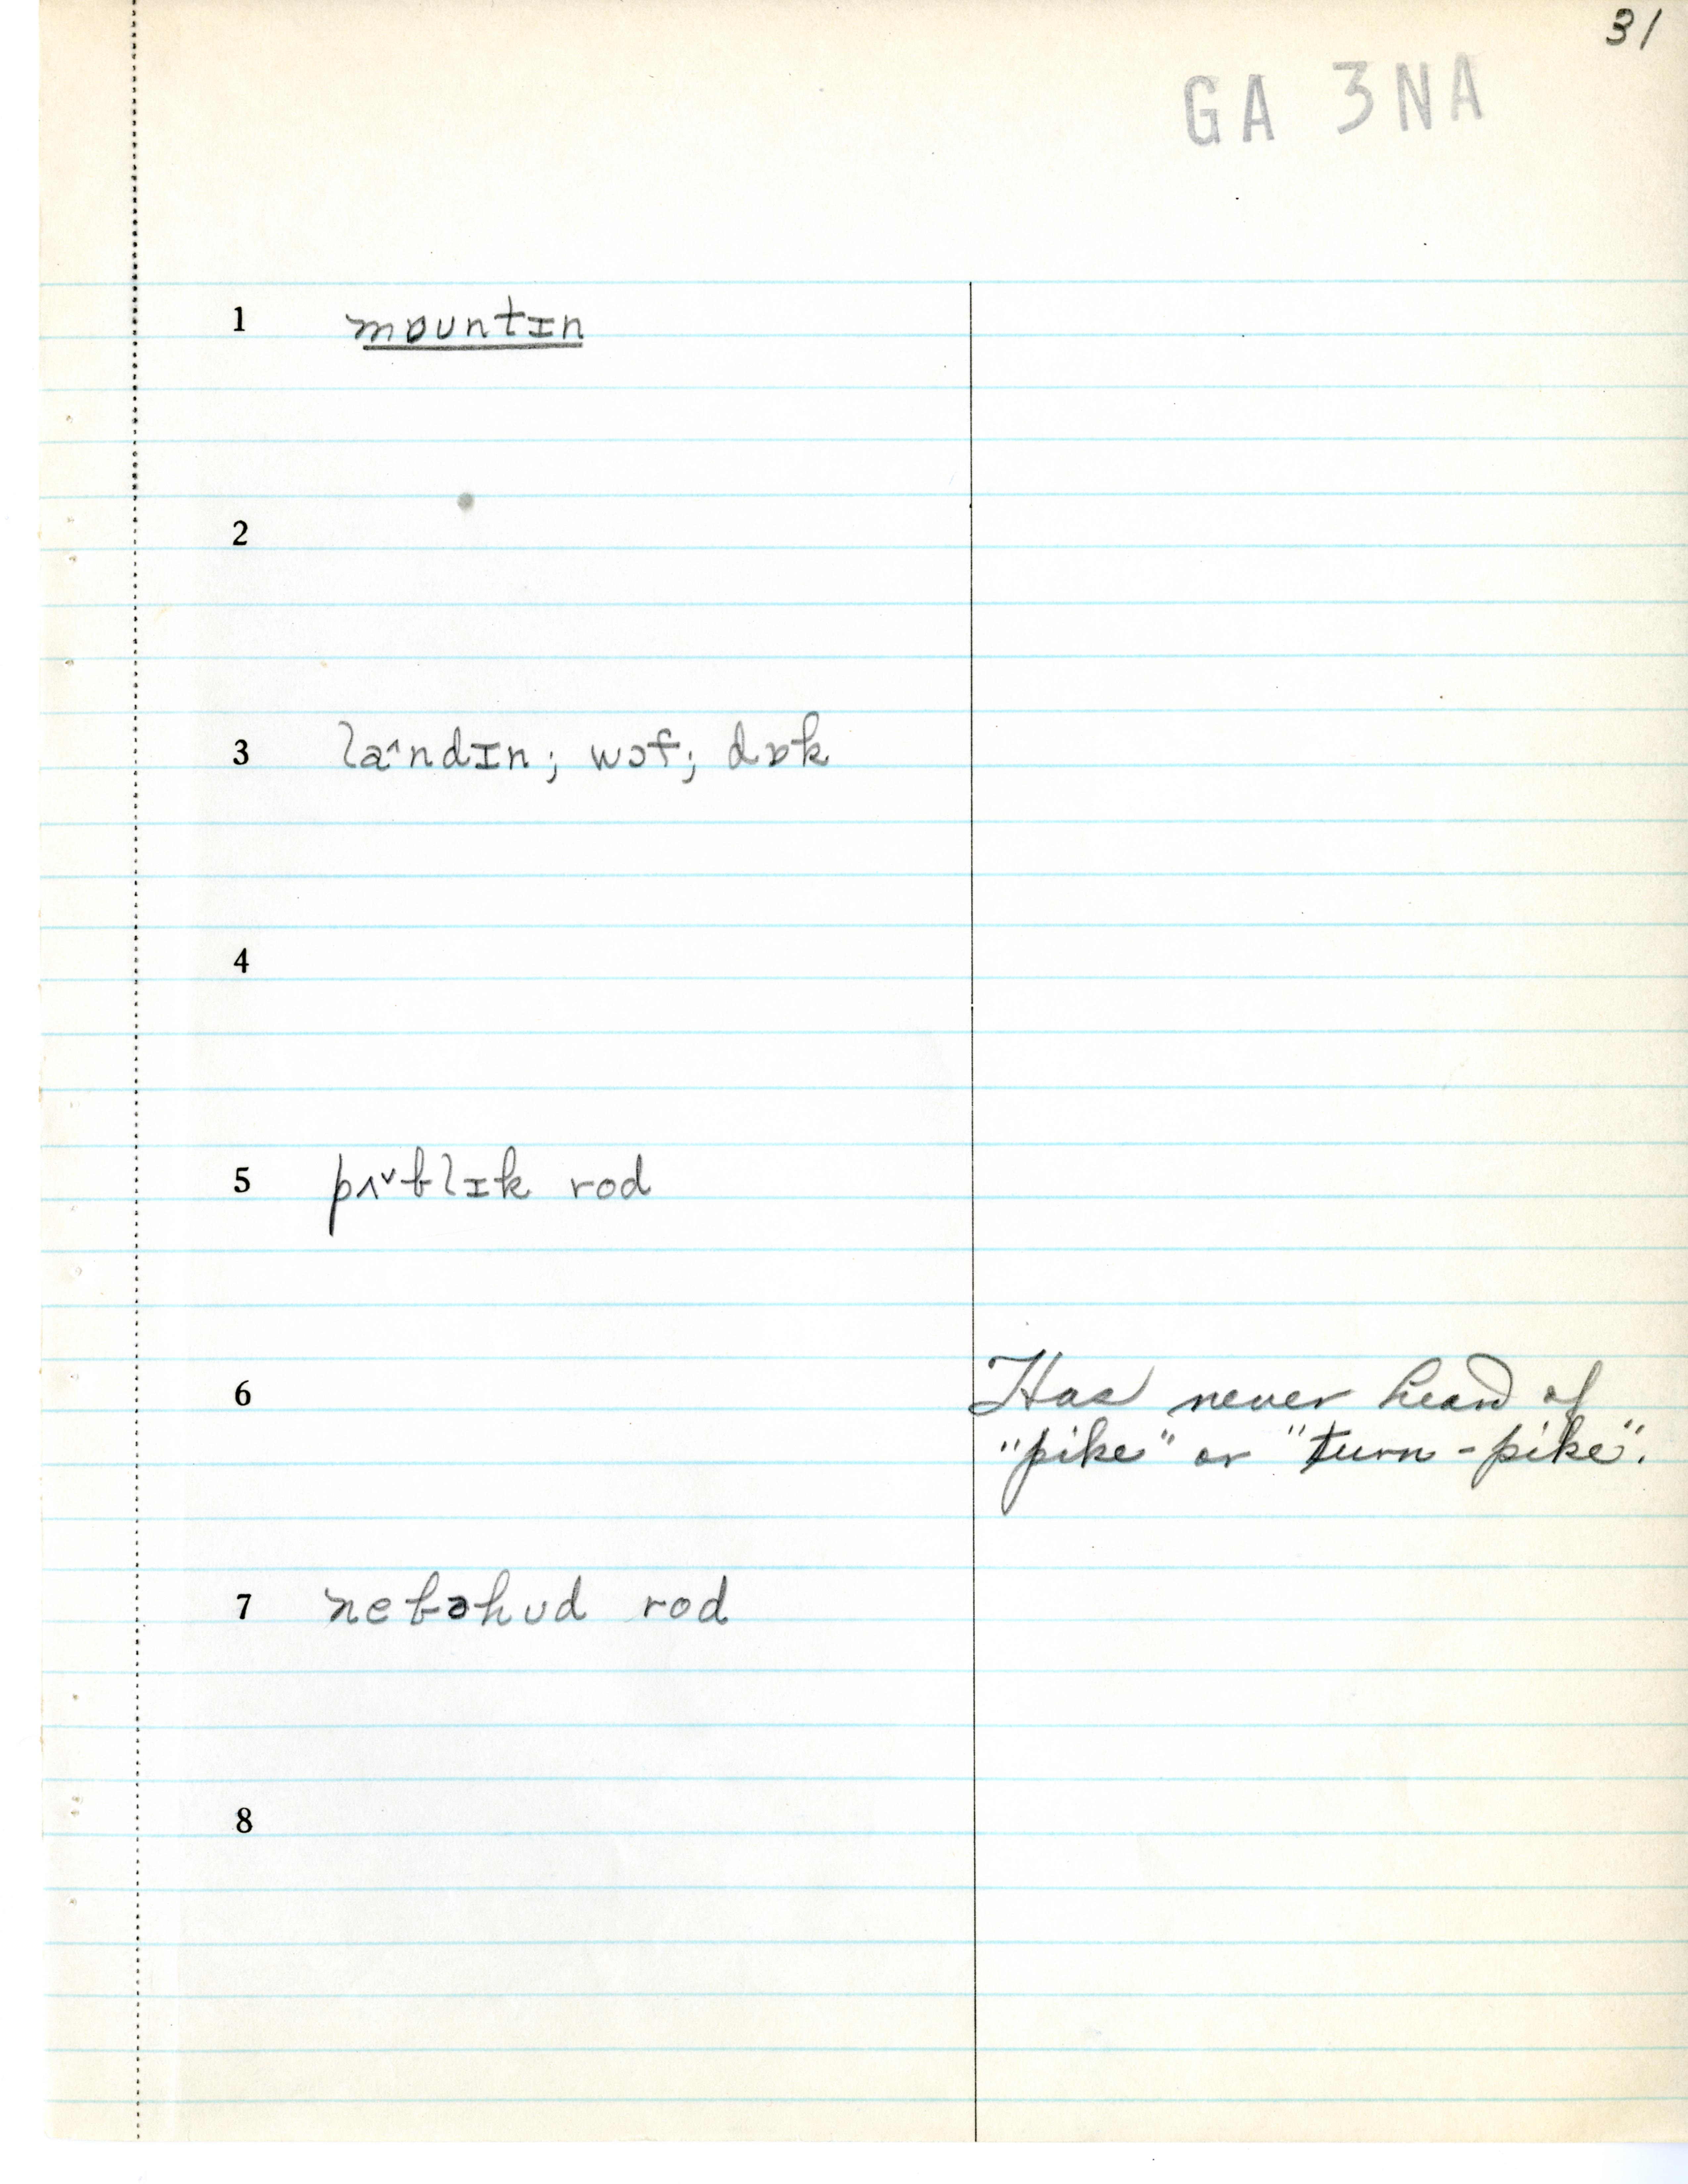 31
GA 3NA
1 mɒuntɪn
2
3 la^ndɪn; wɔf; dɒk
4
5 pʌ˅blɪk rod
6 Has never heard of
"pike" or "turn-pike".
7 nebəhʊd rod
8